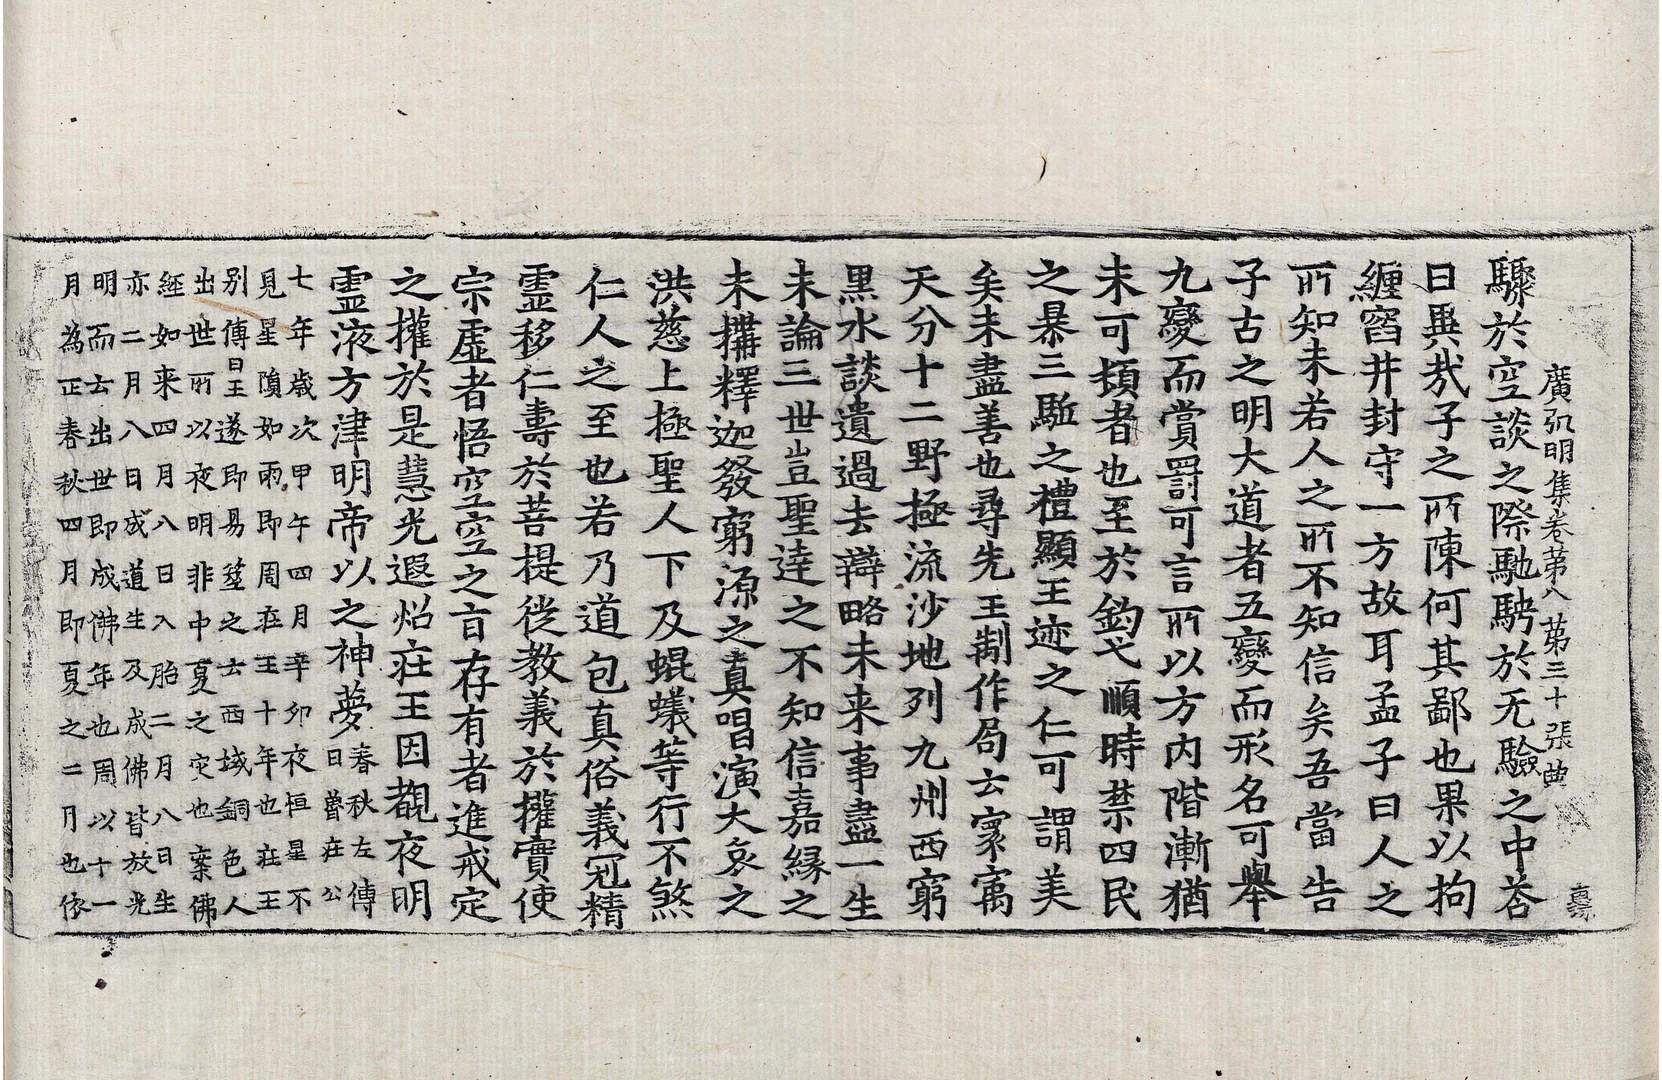 廣弘明集卷第八 第三十張 典
驟於空談之際馳騁於无驗之中荅
曰異㢤子之所陳何其鄙也果以拘
纏窞井封守一方故耳孟子曰人之
所知未若人之所不知信矣吾當告
子古之明大道者五變而形名可舉
九變而賞罰可言所以方內階漸猶
未可頓者也至於鈞弋順時禁四民
之暴三駈之禮顯王迹之仁可謂美
矣未盡善也尋先王制作局云寰㝢
天分十二野極流沙地列九州西窮
黑水談遺過去辯略未来事盡一生
未論三世豈聖達之不知信嘉緣之
未搆釋迦發窮源之真唱演大哀之
洪慈上極聖人下及蜫蟻等行不煞
仁人之至也若乃道包真俗義冠精
霊移仁壽於菩提徙教義於權實使
宗虛者悟空空之旨存有者進戒定
之權於是慧光遐炤莊王因覩夜明
霊液方津明帝以之神夢春秋左傳
曰魯莊公
七年歲次甲午四月辛卯夜恒星不
見星隕如雨即周莊王十年也莊王
別傳曰王遂即易筮之云西域銅色人
出世所以夜明非中夏之灾也案佛
經如来四月八日入胎二月八日生
亦二月八日成道生及成佛皆放光
明而云出世即成佛年也周以十一
月為正春秋四月即夏之二月也依